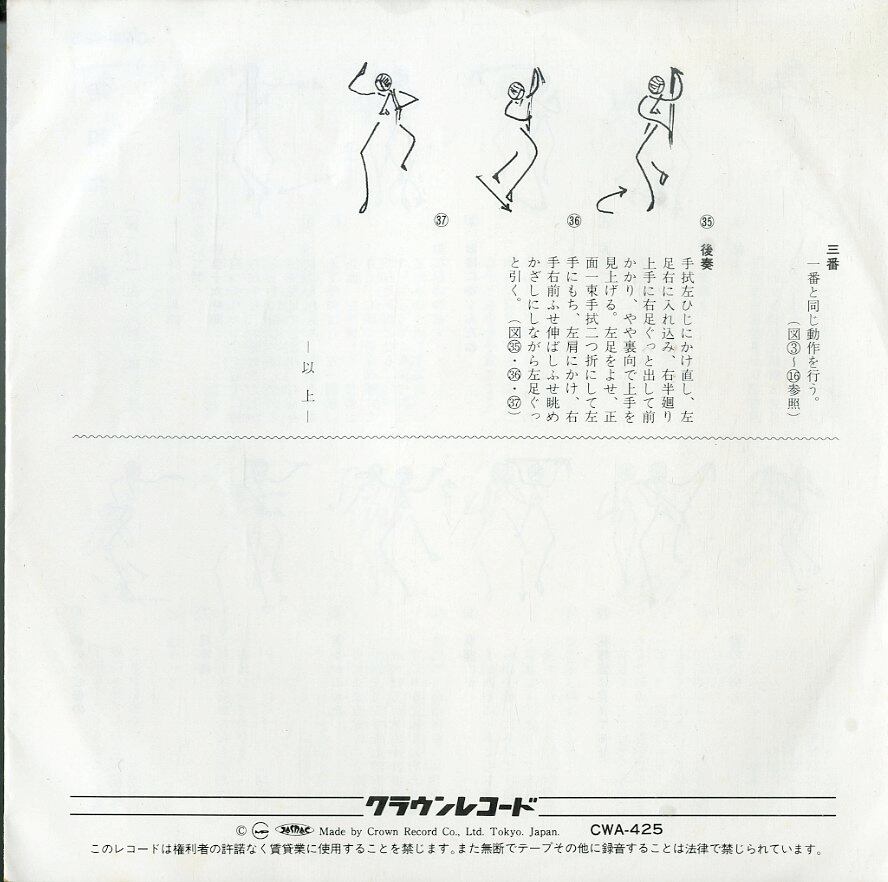 三番
一番と同じ動作を行う。
(図③～⑯参照)
㉟ 後奏
手拭左ひじにかけ直し、左
足右に入れ込み、右半廻り
上手に右足ぐっと出して前
かかり、やや裏向で上手を
見上げる。左足をよせ、正
面一束手拭二つ折にして左
手にもち、左肩にかけ、右
手右前ふせ伸ばしふせ眺め
かざしにしながら左足ぐっ
と引く。(図㉟・㊱・㊲)
㊱
㊲
―以上―
クラウンレコード
© JASRAC Made by Crown Record Co., Ltd. Tokyo. Japan. CWA-425
このレコードは権利者の許諾なく賃貸業に使用することを禁じます。また無断でテープその他に録音することは法律で禁じられています。